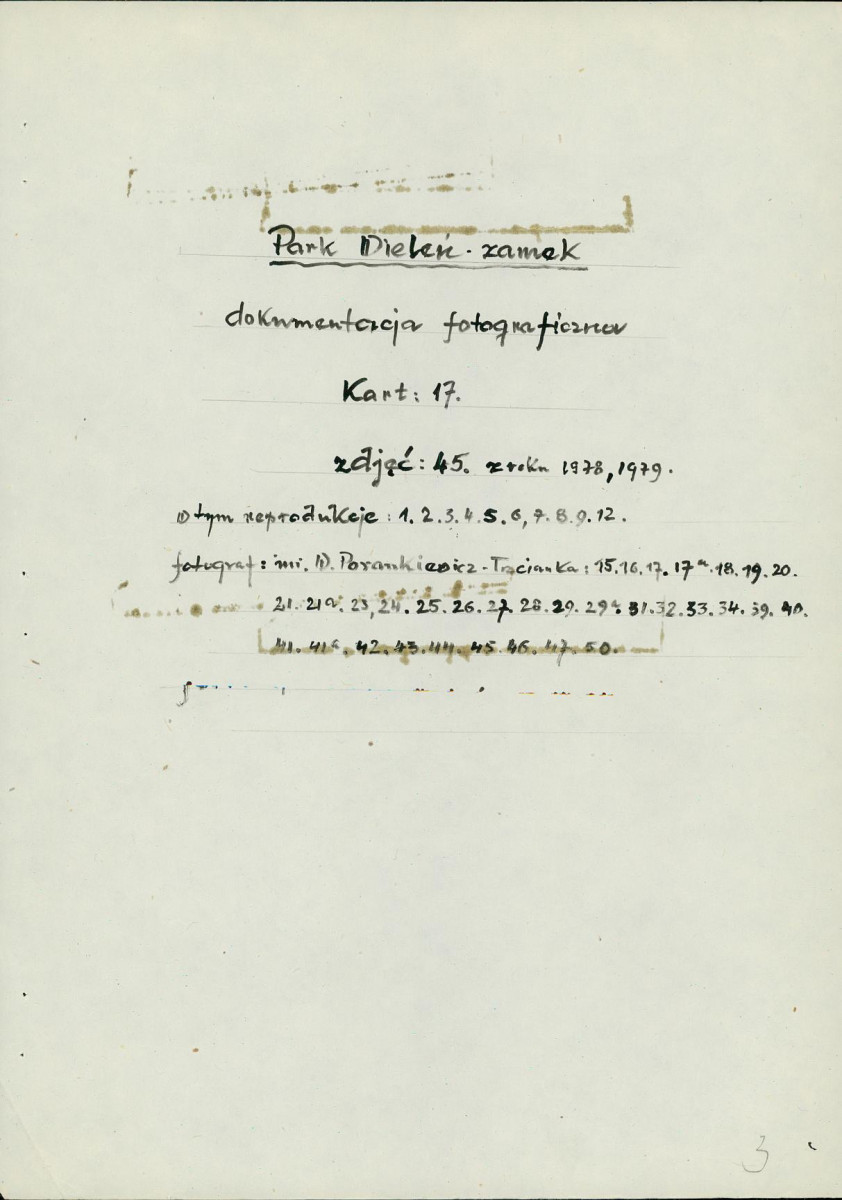 Park Wieleń - zamek
dokumentacja fotograficzna
Kart: 17.
zdjęć: 45. z roku 1978, 1979.
W tym reprodukcje: 1. 2. 3. 4. 5. 6, 7. 8. 9. 12.
fotograf: W. Porankiewicz - Trzcianka: 15. 16. 17. 17a. 18. 19. 20.
21. 21a. 23, 24. 25. 26. 27. 28. 29. 29a. 31. 32. 33. 34. 39. 40.
41. 41a. 42. 43. 44. 45. 46. 47. 50.
3